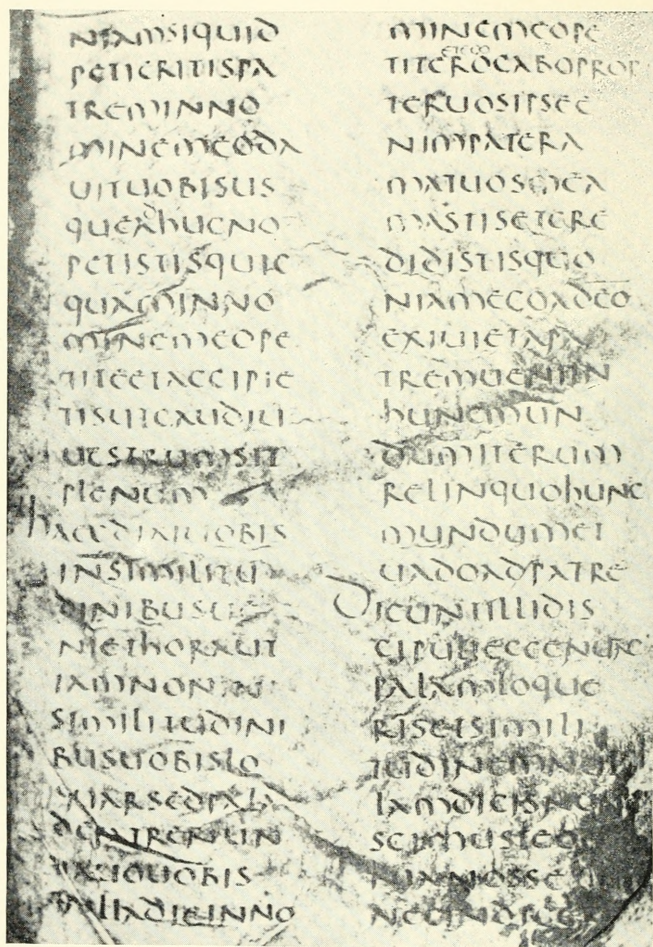 NIAMSIQUID
PETIERITISPA
TREMINNO
MINEMEODA
UITUOBISUS
QUEADHUCNO
PETISTISQUIC
QUAMINNO
MINEMEOPE
TITEETACCIPIE
TISUTGAUDIU
UESTRUMSIT
PLENUM
HAECDIXIUOBIS
INSIMILITU
DINIBUSUE
NIETHORAUT
IAMNONIN
SIMILITUDINI
BUSUOBISLO
QUARSEDPALA
DEPATREMEUN
UOBIS
DIEINNO
MINEMEOPE
ETEGO
TITEROGABOPROP
TERUOSIPSEE
NIMPATERA
MATUOSMEA
MASTISETCRE
DIDISTISQUO
NIAMEGOADEO
EXIUIETAPA
TREMUENIIN
HUNCMUN
DUMITERUM
RELINQUOHUNC
MUNDUMET
UADOADPATRE
DICUNTILLIDIS
CIPULIECCENUNC
PALAMLOQUE
RISETSIMILI
TUDINEMNUL
LAMDICISNUNC
SCIMUSTE
OMNIANOSSE
NECINDIGE